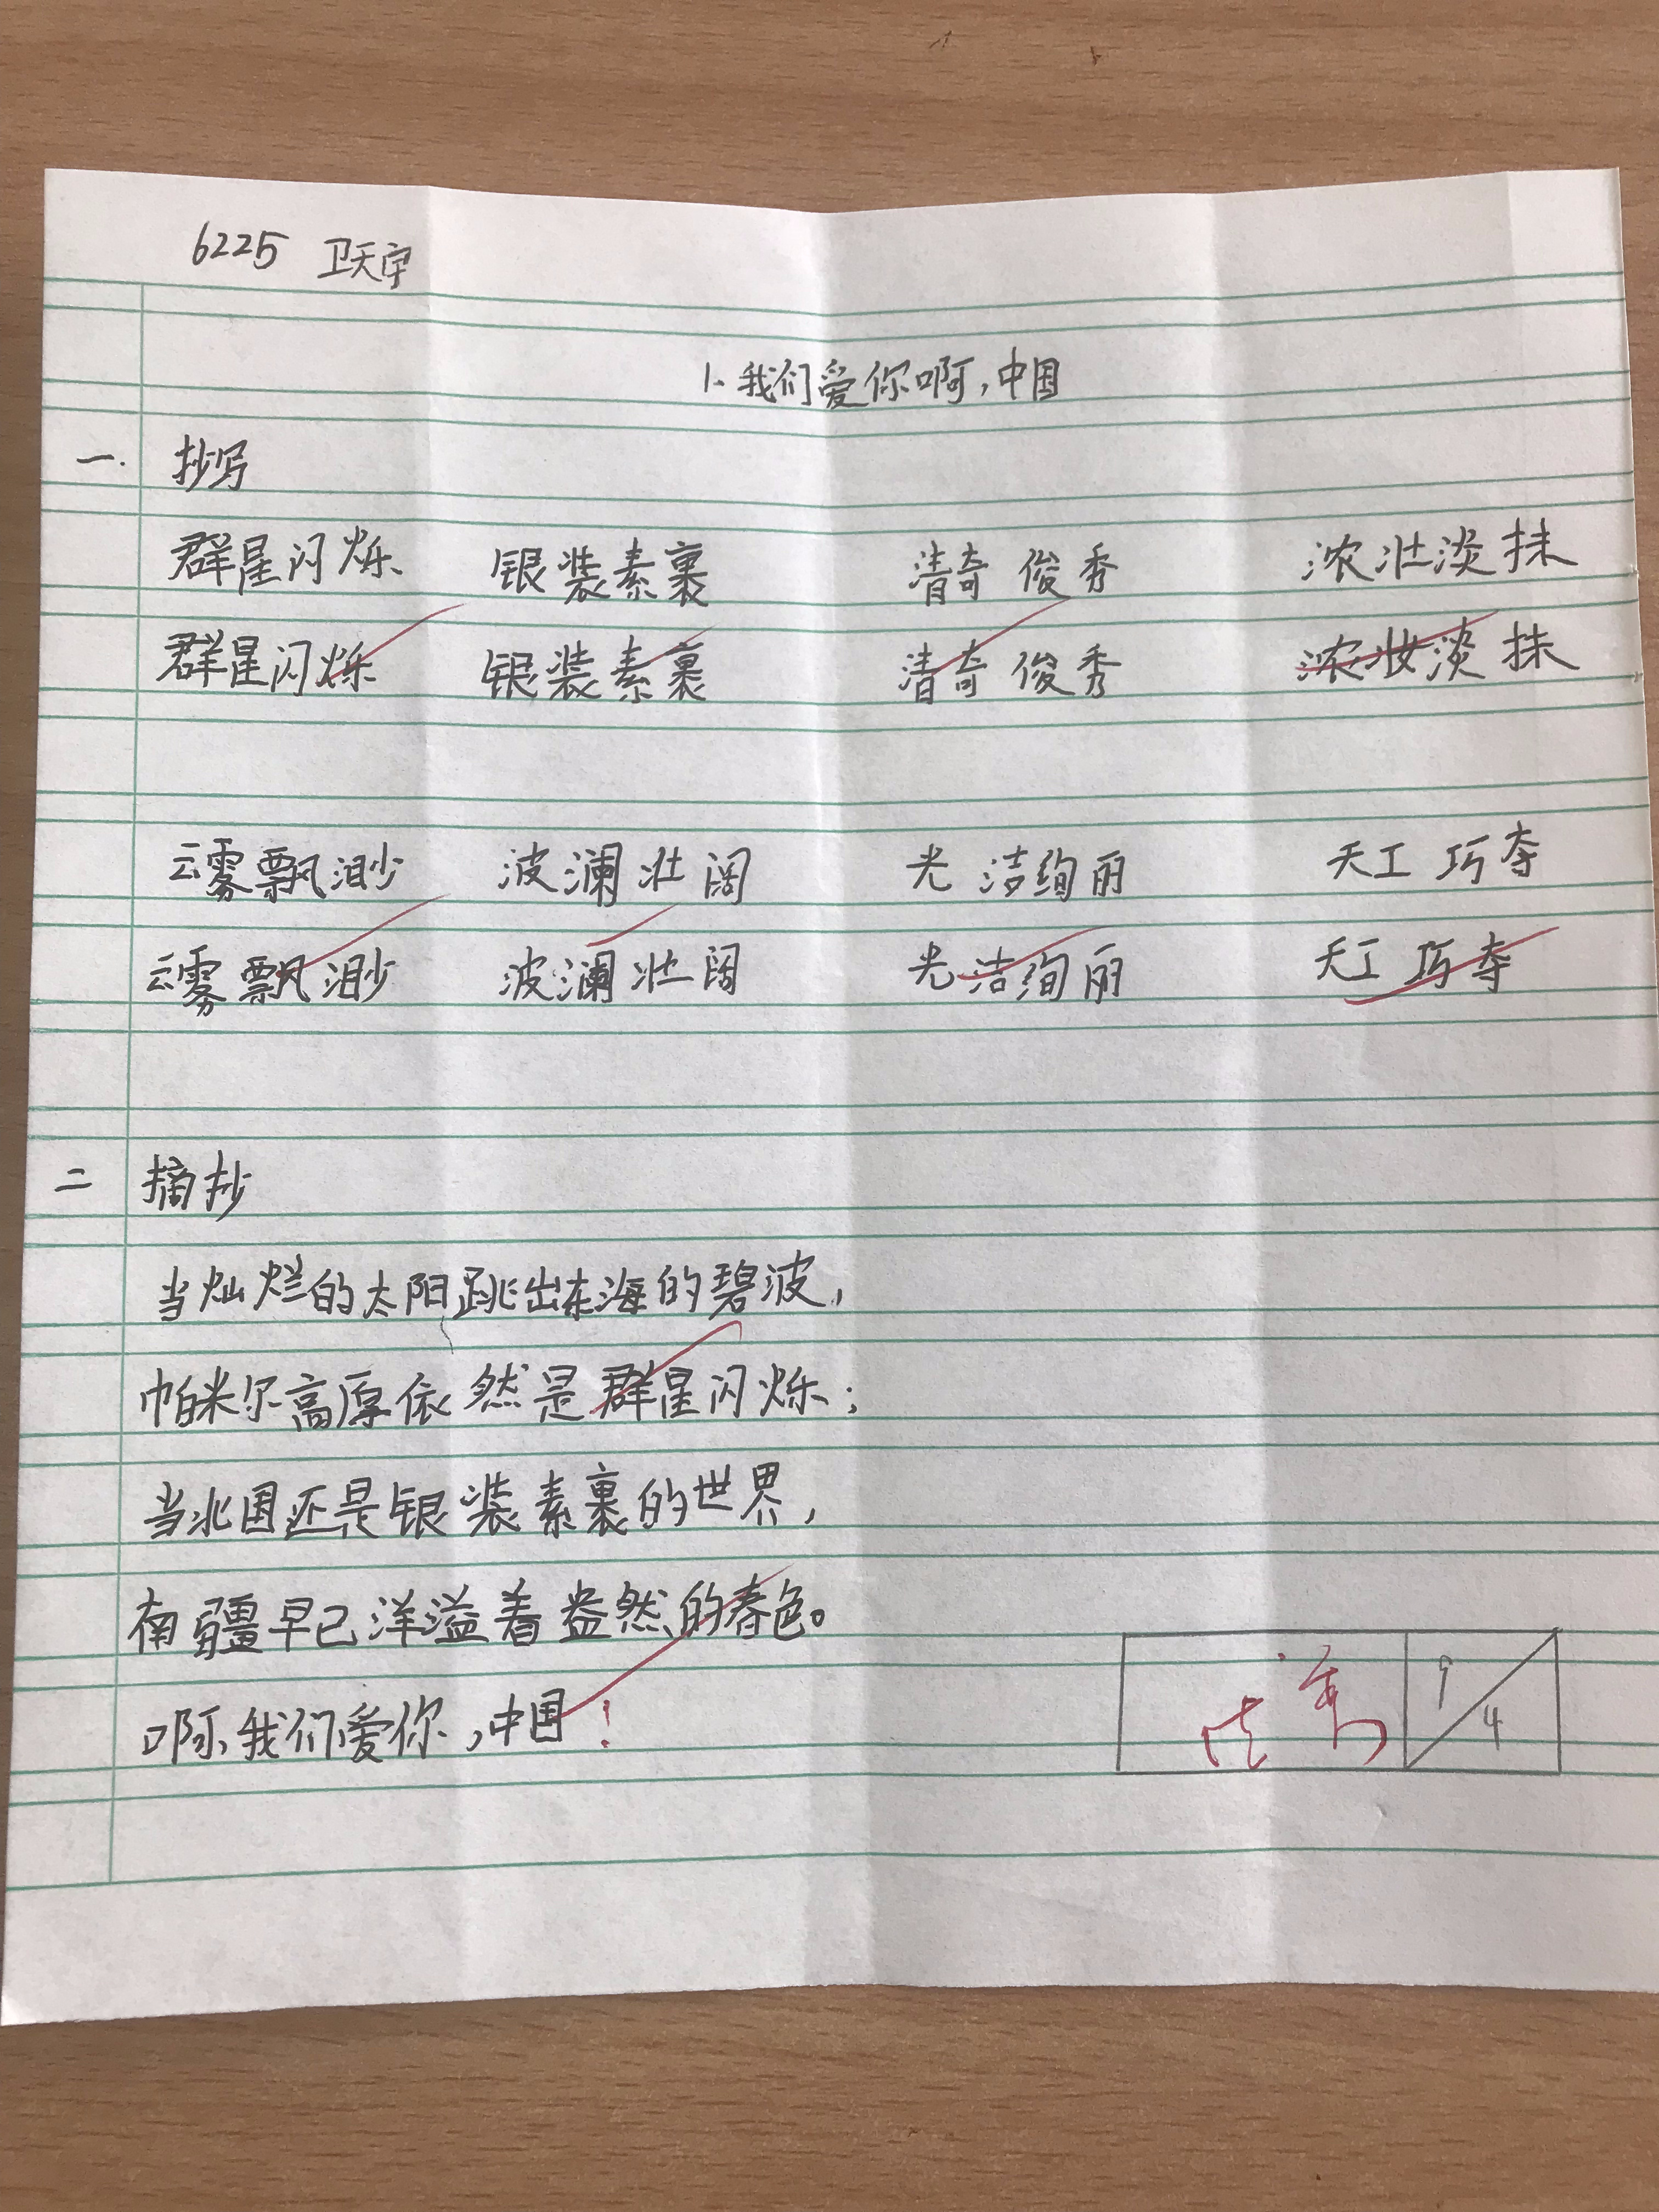 6225 卫天宇
1.我们爱你啊,中国
一. 抄写
群星闪烁 银装素裹 清奇俊秀 浓壮淡抹
群星闪烁 银装素裹 清奇俊秀 浓妆淡抹
云雾飘渺 波澜壮阔 光洁绚丽 天工巧夺
云雾飘渺 波澜壮阔 光洁绚丽 天工巧夺
二 摘抄
当灿烂的太阳跳出东海的碧波,
帕米尔高厚依然是群星闪烁;
当北国还是银装素裹的世界,
南疆早已洋溢着盎然的春色。
啊,我们爱你,中国!
9/4